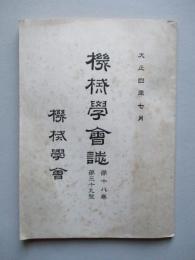 大正四年七月
機械學會誌
第十八卷
第三十九號
機械學會